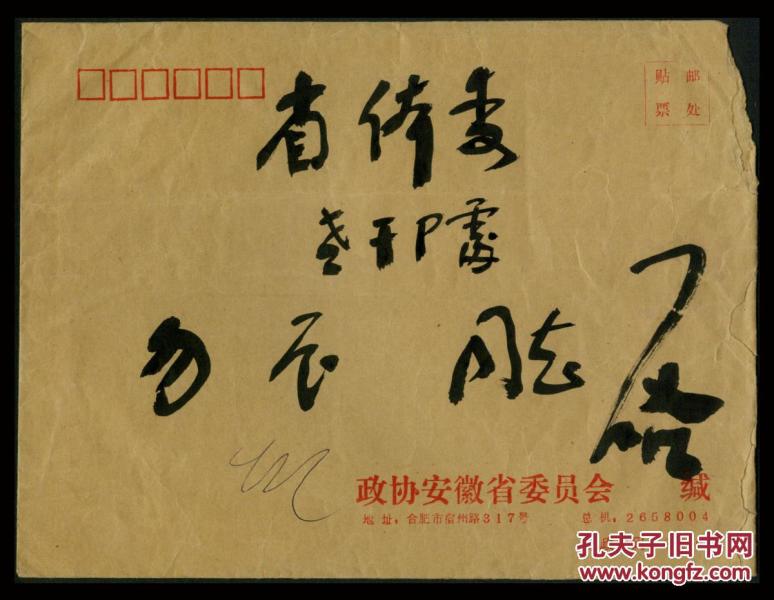 贴 邮
票 处
省体委
老干卩處
同志
启
政协安徽省委员会 缄
地址：合肥市宿州路317号 总机：2658004
孔夫子旧书网
www.kongfz.com